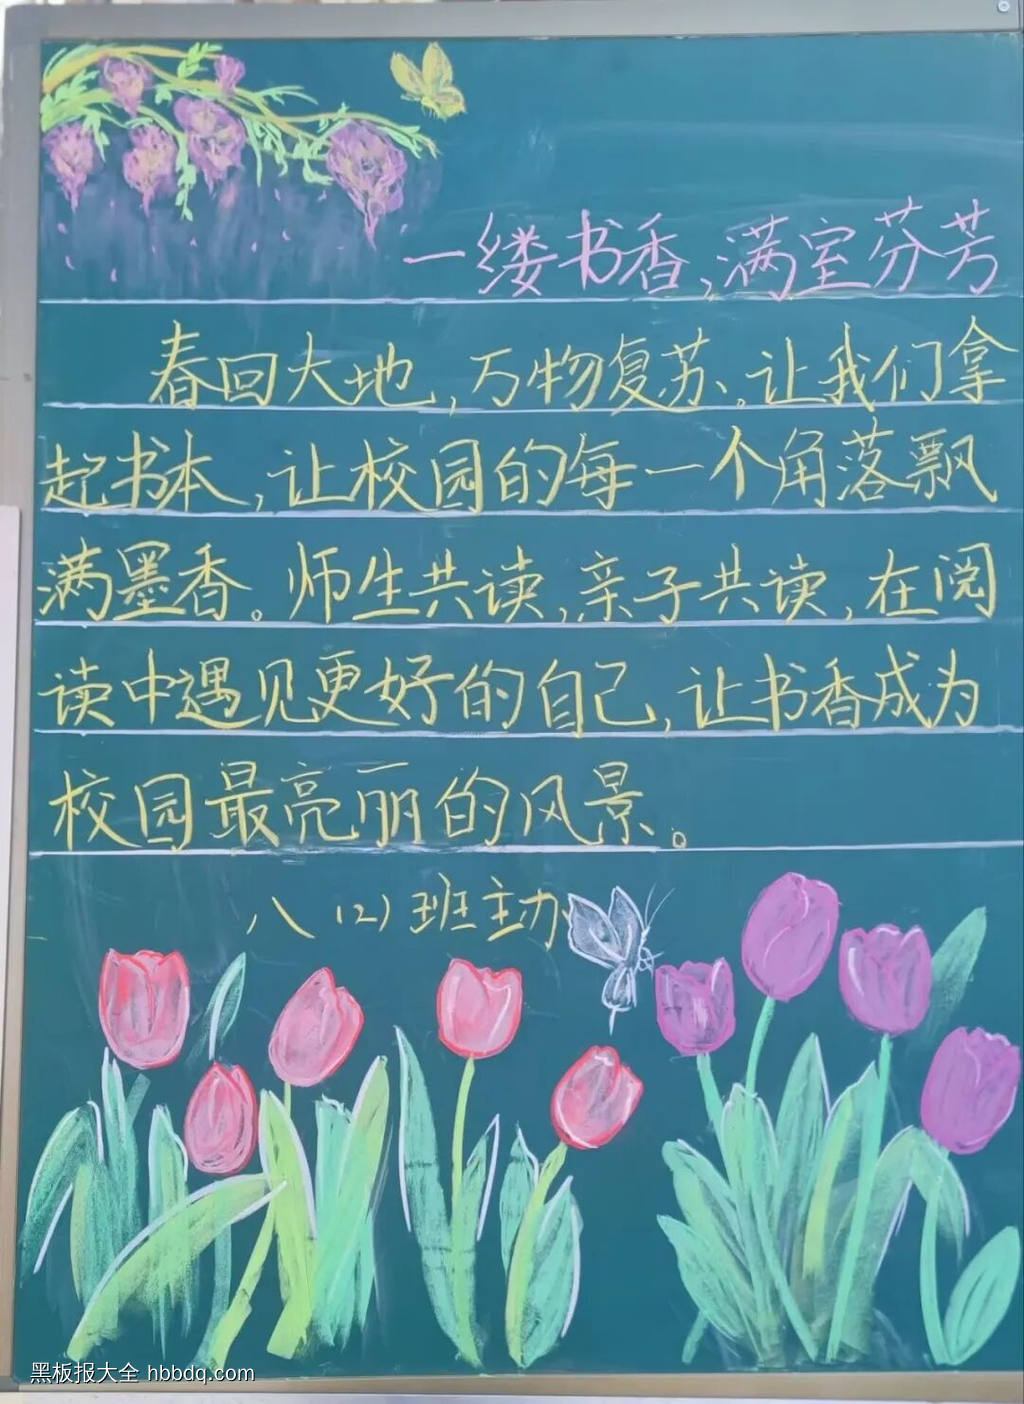 一缕书香,满室芬芳
春回大地,万物复苏。让我们拿
起书本,让校园的每一个角落飘
满墨香。师生共读,亲子共读,在阅
读中遇见更好的自己,让书香成为
校园最亮丽的风景。
八(2)班主办
黑板报大全 hbbdq.com